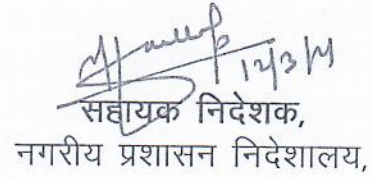 सहायक निदेशक,
नगरीय प्रशासन निदेशालय,